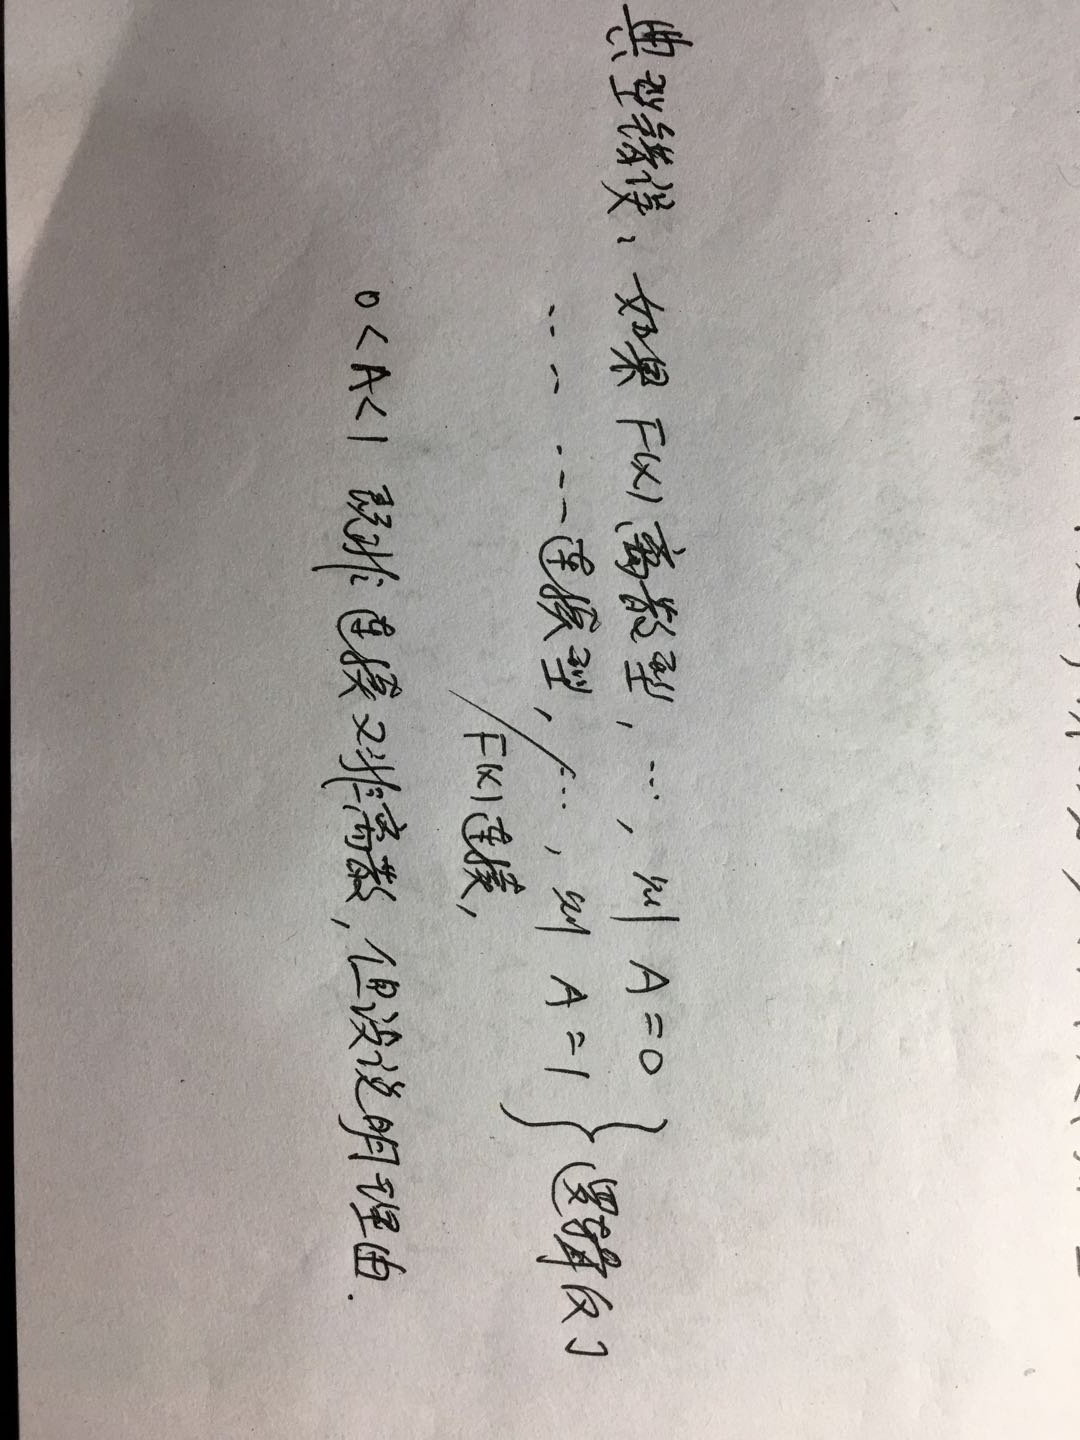 典型错误: 如果 F(x) 离散型, …, 则 A=0
…… …… 连续型, …, 则 A=1 } 逻辑反了
F(x) 连续,
0<A<1 既非连续又非离散, 但没说明理由.